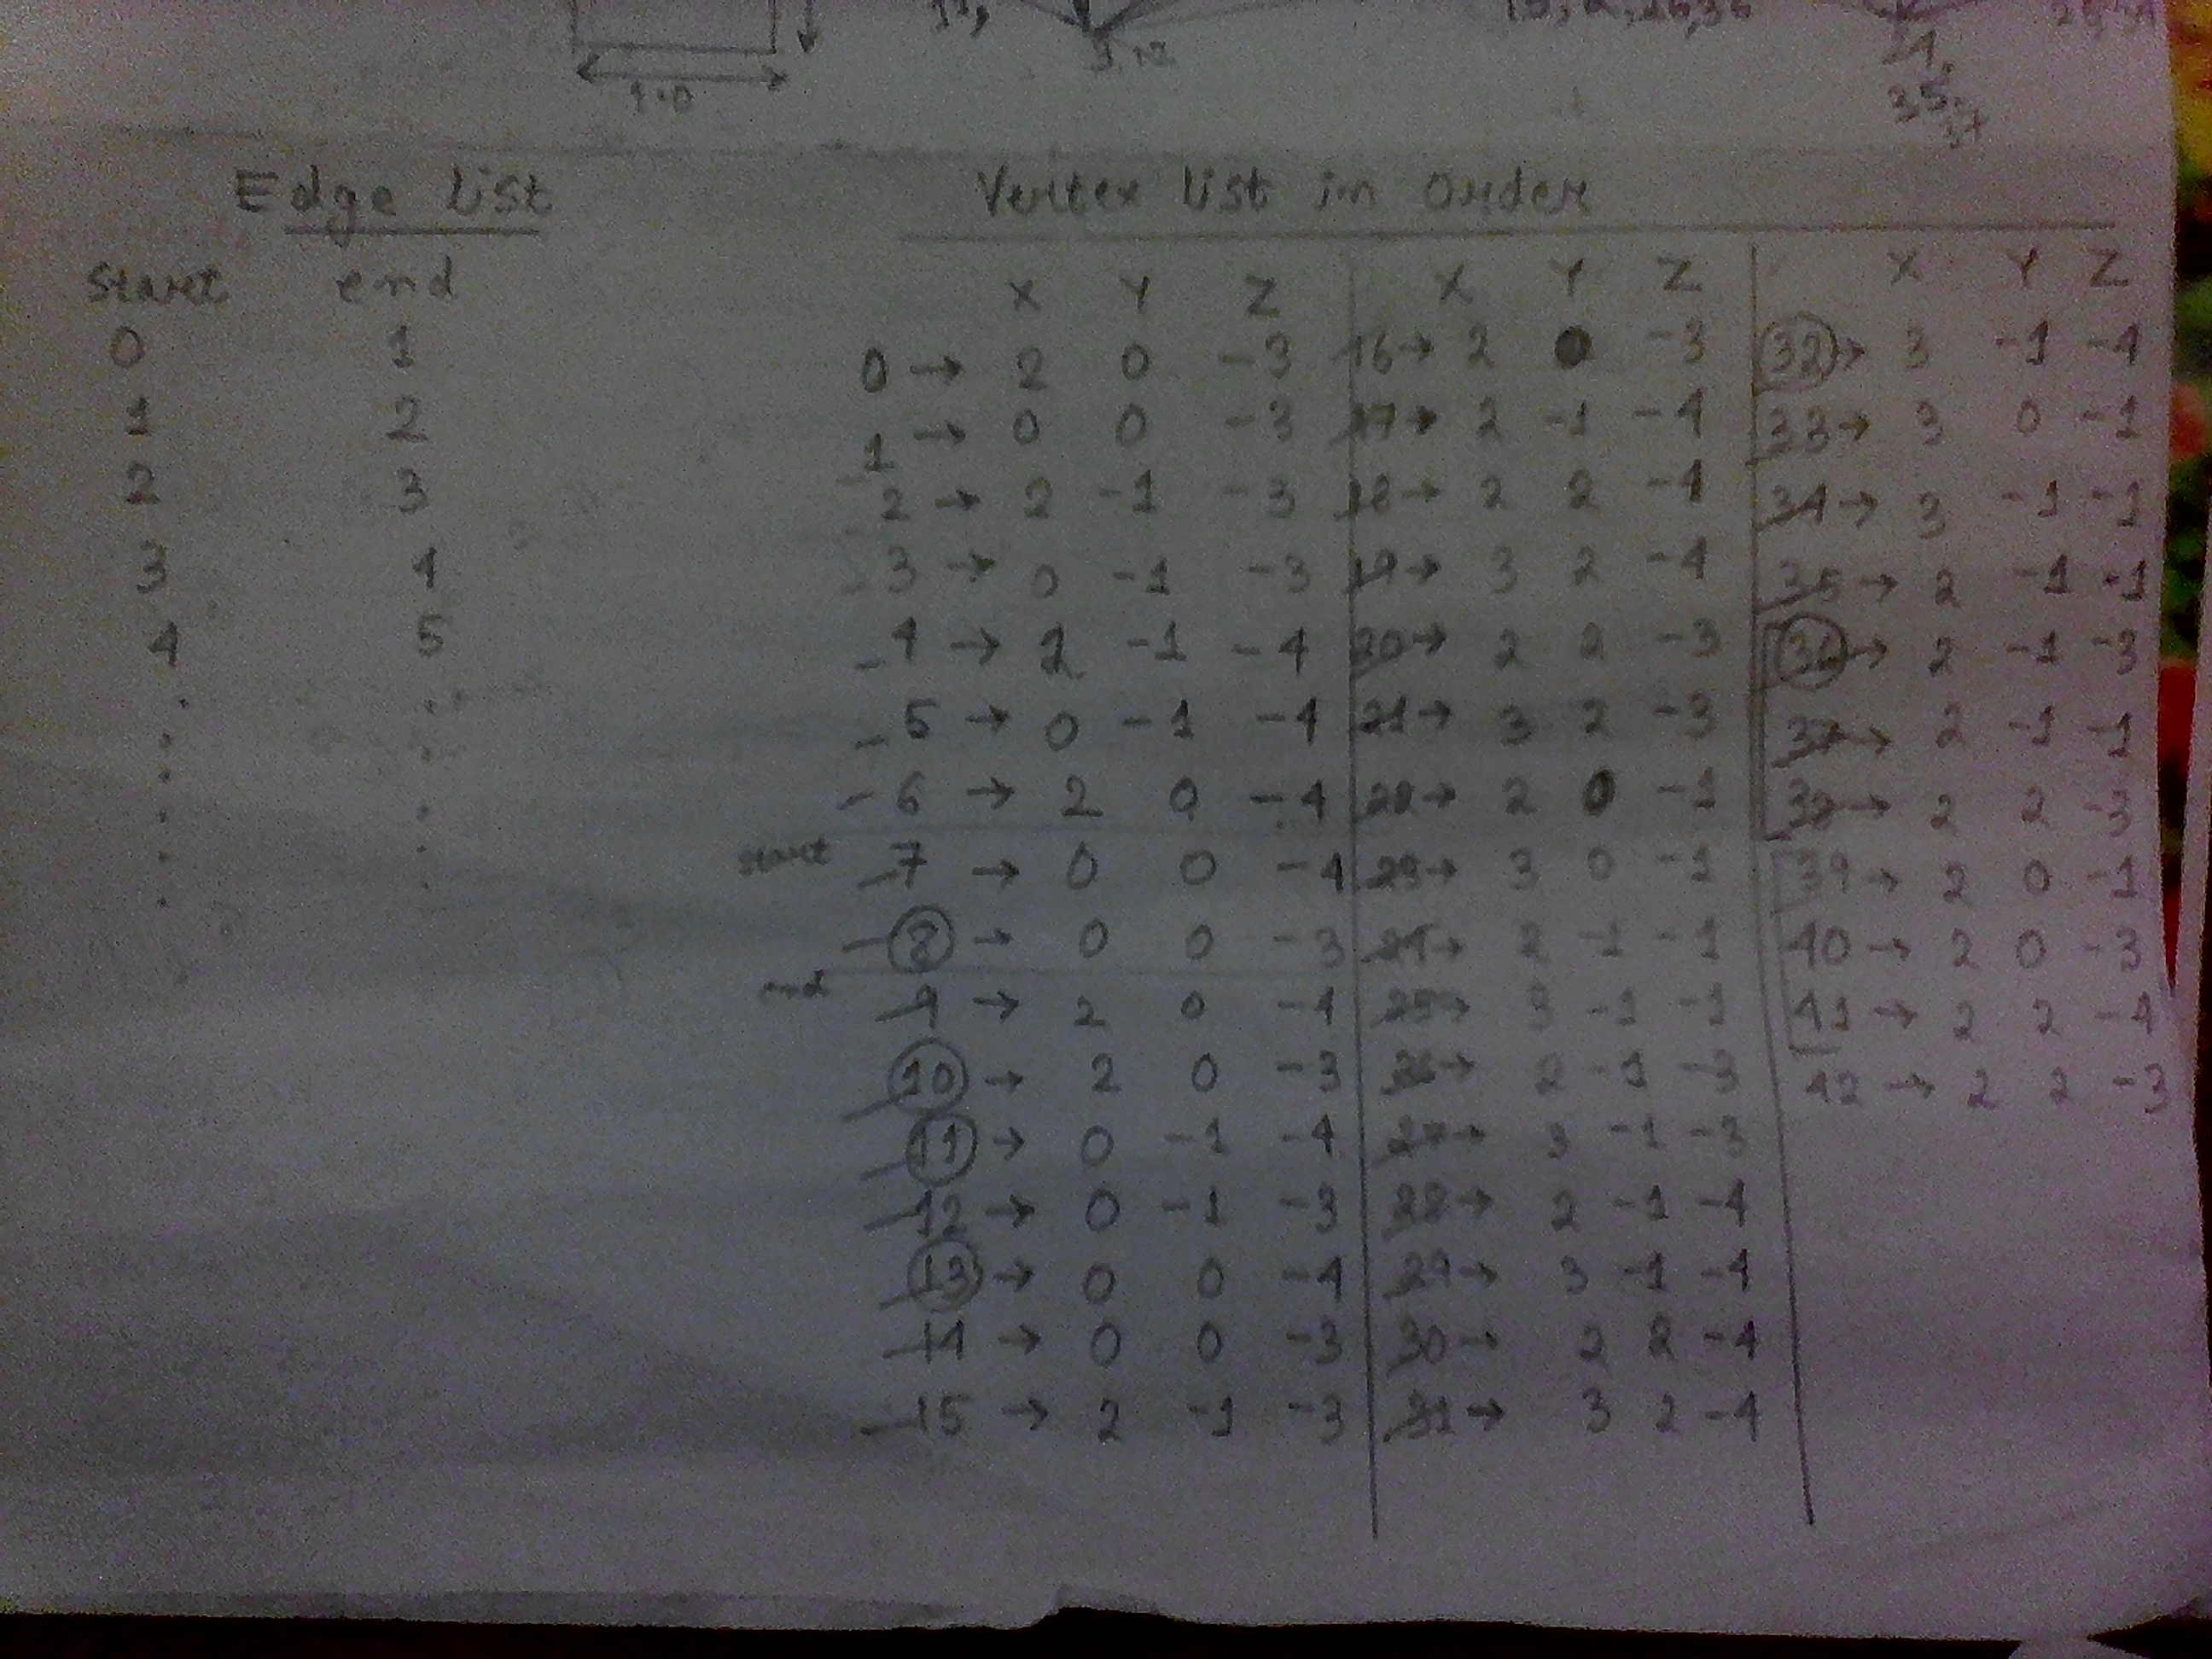 3,12
15, 2, 26,36
24,
35,
37
Edge List
Start end
0 1
1 2
2 3
3 4
4 5
Vertex list in order
X Y Z
0 → 2 0 -3
1 → 0 0 -3
2 → 2 -1 -3
3 → 0 -1 -3
4 → 2 -1 -4
5 → 0 -1 -4
6 → 2 0 -4
start 7 → 0 0 -4
8 → 0 0 -3
end 9 → 2 0 -4
10 → 2 0 -3
11 → 0 -1 -4
12 → 0 -1 -3
13 → 0 0 -4
14 → 0 0 -3
15 → 2 -1 -3
X Y Z
16 → 2 0 -3
17 → 2 -1 -4
18 → 2 2 -4
19 → 3 2 -4
20 → 2 2 -3
21 → 3 2 -3
22 → 2 0 -1
23 → 3 0 -1
24 → 2 -1 -1
25 → 3 -1 -1
26 → 2 -1 -3
27 → 3 -1 -3
28 → 2 -1 -4
29 → 3 -1 -4
30 → 2 2 -4
31 → 3 2 -4
X Y Z
32 → 3 -1 -4
33 → 3 0 -1
34 → 3 -1 -1
35 → 2 -1 -1
36 → 2 -1 -3
37 → 2 -1 -1
38 → 2 2 -3
39 → 2 0 -1
40 → 2 0 -3
41 → 2 2 -4
42 → 2 2 -3